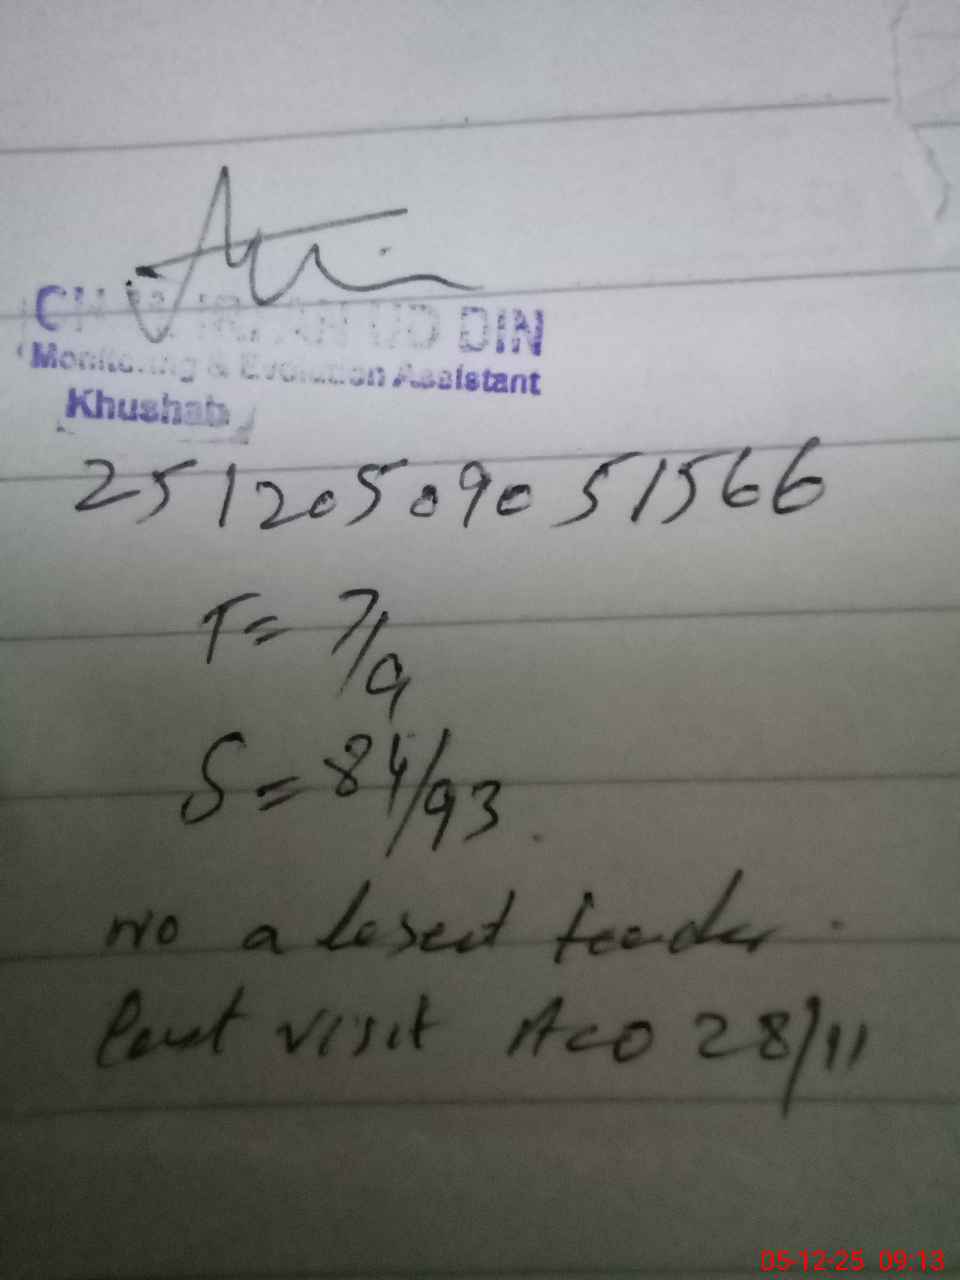 CH IRFAN UD DIN
Monitoring & Evolution Assistant
Khushab
25120509051566
T= 7/9
S= 84/93.
no a
last visit AEO 28/11
05-12-25 09:13